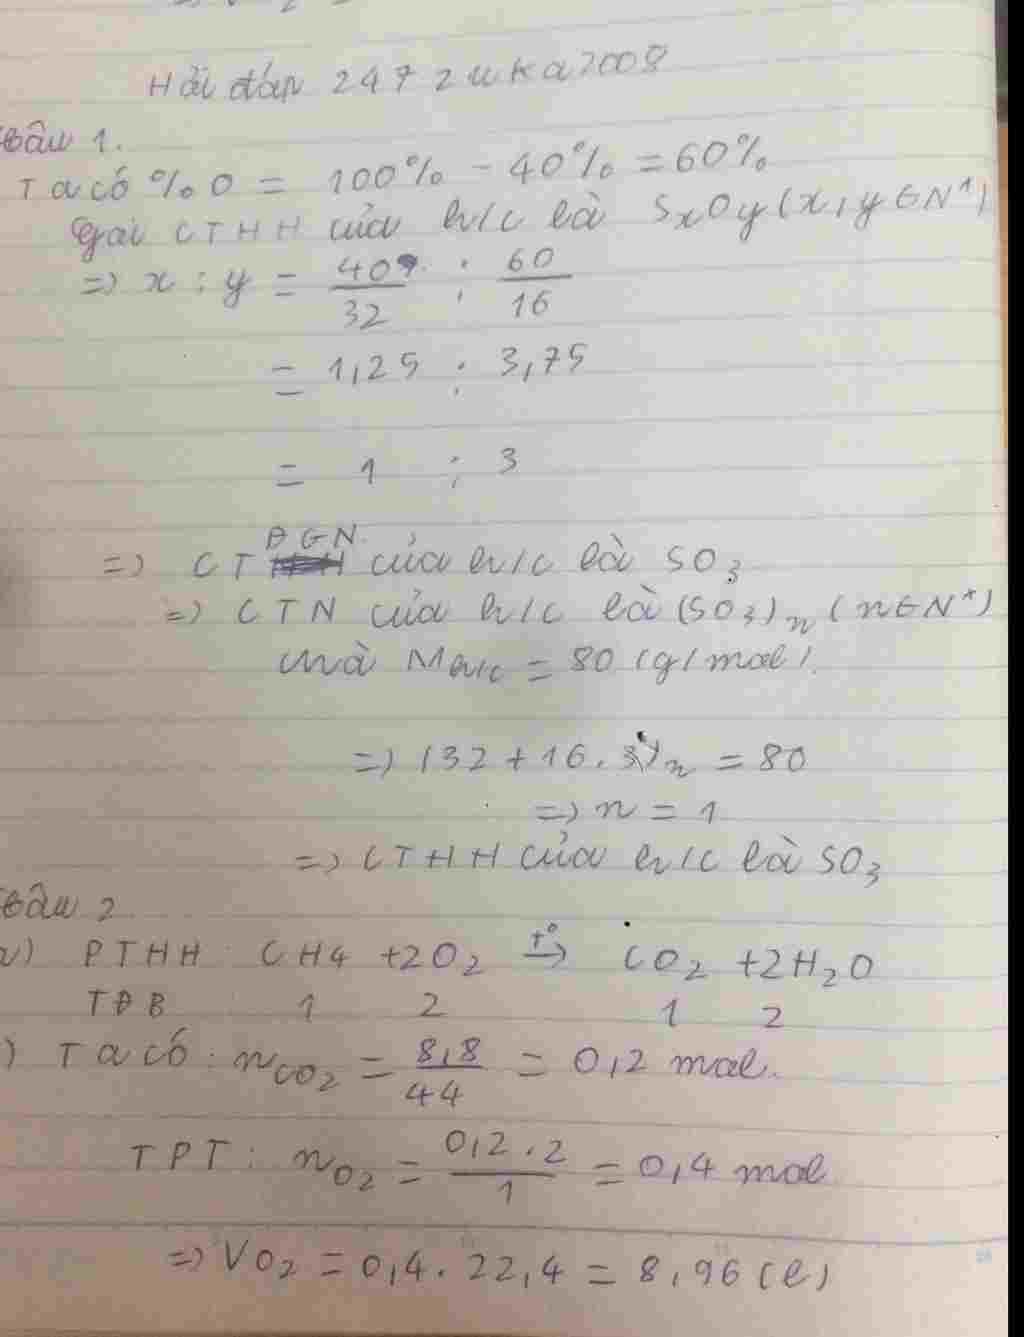 Hỏi đáp 247 zuka2008
Câu 1.
Ta có %O = 100% - 40% = 60%
Gọi CTHH của h/c là SxOy (x, y ∈ N*)
=> x : y = 40%/32 : 60/16
= 1,25 : 3,75
= 1 : 3
=> CTĐGN của h/c là SO3
=> CTN của h/c là (SO3)n (n ∈ N*)
mà Mh/c = 80 (g/mol).
=> (32 + 16.3)n = 80
=> n = 1
=> CTHH của h/c là SO3
Câu 2
a) PTHH: CH4 + 2O2 t°→ CO2 + 2H2O
TĐB 1 2 1 2
) Ta có: nCO2 = 8,8/44 = 0,2 mol.
TPT: nO2 = 0,2.2/1 = 0,4 mol
=> VO2 = 0,4.22,4 = 8,96 (l)